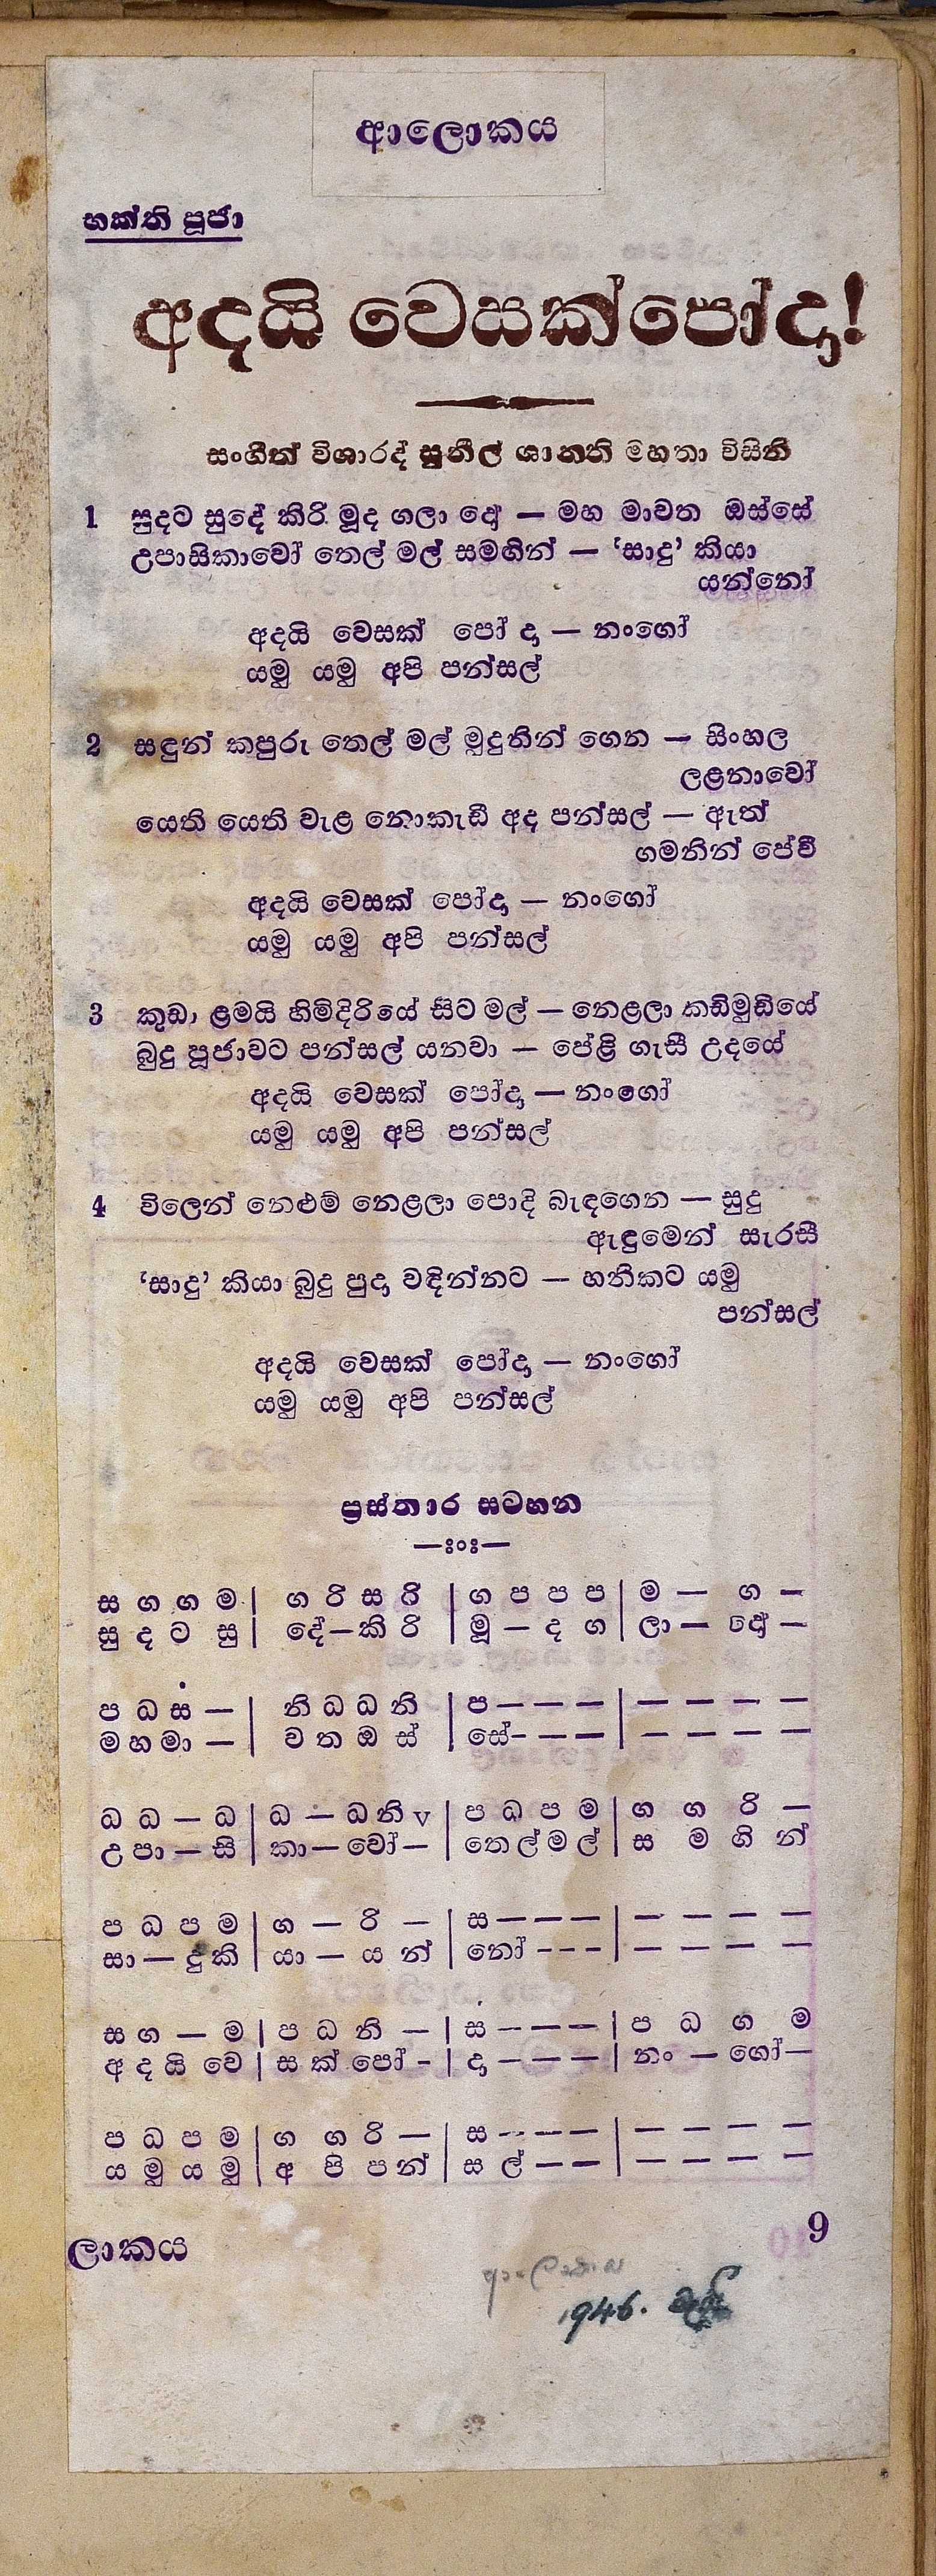 ආලොකය
භක්ති පූජා
අදයි වෙසක්පෝදා!
සංගීත් විශාරද් සුනිල් ශාන්ති මහතා විසිනි
1 සුදට සුදේ කිරි මූද ගලා දෝ — මහ මාවත ඔස්සේ
උපාසිකාවෝ තෙල් මල් සමඟින් — ‘සාදු’ කියා
යන්නෝ
අදයි වෙසක් පෝ දා — නංගෝ
යමු යමු අපි පන්සල්
2 සඳුන් කපුරු තෙල් මල් මුදුනින් ගෙන — සිංහල
ලළනාවෝ
යෙති යෙති වැළ නොකැඩී අද පන්සල් — ඇත්
ගමනින් පේවී
අදයි වෙසක් පෝදා — නංගෝ
යමු යමු අපි පන්සල්
3 කුඩා ළමයි හිමිදිරියේ සිට මල් — නෙළලා කඩිමුඩියේ
බුදු පූජාවට පන්සල් යනවා — පේළි ගැසී උදයේ
අදයි වෙසක් පෝදා — නංගෝ
යමු යමු අපි පන්සල්
4 විලෙන් නෙළුම් නෙළලා පොදි බැඳගෙන — සුදු
ඇඳුමෙන් සැරසී
‘සාදු’ කියා බුදු පුදා වඳින්නට — හනිකට යමු
පන්සල්
අදයි වෙසක් පෝදා — නංගෝ
යමු යමු අපි පන්සල්
ප්‍රස්තාර සටහන
ස ග ග ම | ග රි ස රි | ග ප ප ප | ම — ග —
සු ද ට සු | දේ — කි රි | මූ — ද ග | ලා — දෝ —
ප ධ ස් — | නි ධ ධ නි | ප — — — | — — — —
ම හ මා — | ව ත ඔ ස් | සේ - — — | — — — —
ධ ධ — ධ | ධ — ධ නි v | ප ධ ප ම | ග ග රි —
උ පා — සි | කා — වෝ — | තෙ ල් ම ල් | ස ම ගි න්
ප ධ ප ම | ග — රි — | ස — — — | — — — —
සා — දු කි | යා — ය න් | නෝ - - - | — — — —
ස ග — ම | ප ධ නි — | ස් - — — | ප ධ ග ම
අ ද යි වෙ | ස ක් පෝ - | දා - — — | නං — ගෝ —
ප ධ ප ම | ග ග රි — | ස - - — — | — — — —
ය මු ය මු | අ පි ප න් | ස ල් — — | — — — —
ලාකය
9
1946.